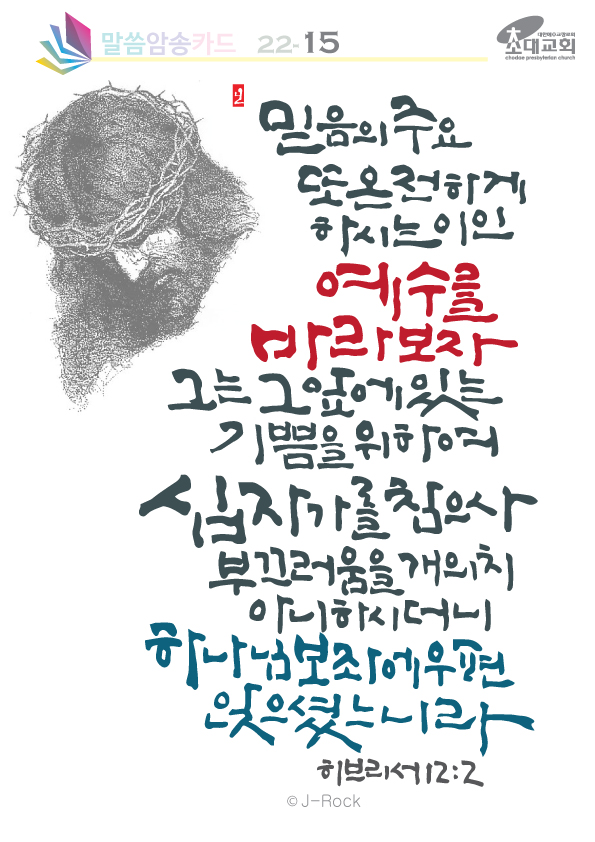 말씀암송카드 22-15
대한예수교장로회
초대교회
chodae presbyterian church
믿음의 주요
또 온전하게
하시는 이인
예수를
바라보자
그는 그 앞에 있는
기쁨을 위하여
십자가를 참으사
부끄러움을 개의치
아니하시더니
하나님 보좌에 우편
앉으셨느니라
히브리서 12:2
© J-Rock